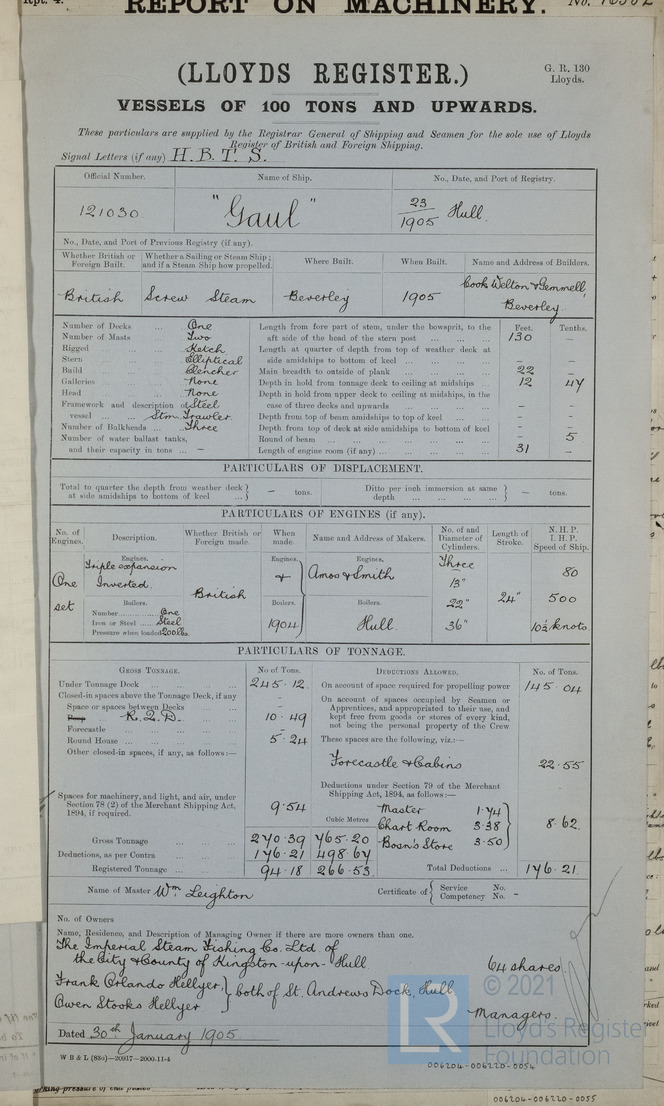 Rpt. 4.
REPORT ON MACHINERY. No.
(LLOYDS REGISTER.)
G. R. 130
Lloyds.
VESSELS OF 100 TONS AND UPWARDS.
These particulars are supplied by the Registrar General of Shipping and Seamen for the sole use of Lloyds
Register of British and Foreign Shipping.
Signal Letters (if any) H. B. T. S.
Official Number. Name of Ship. No., Date, and Port of Registry.
121030 "Gaul" 23/1905 Hull.
No., Date, and Port of Previous Registry (if any).
Whether British or Foreign Built. Whether a Sailing or Steam Ship; and if a Steam Ship how propelled. Where Built. When Built. Name and Address of Builders.
British Screw Steam Beverley 1905 Cook Welton & Gemmell, Beverley
Feet. Tenths.
Number of Decks ... One Length from fore part of stem, under the bowsprit, to the
Number of Masts ... Two aft side of the head of the stern post ... 130 –
Rigged ... Ketch Length at quarter of depth from top of weather deck at
Stern ... Elliptical side amidships to bottom of keel ... – –
Build ... Clencher Main breadth to outside of plank ... 22 –
Galleries ... None Depth in hold from tonnage deck to ceiling at midships 12 47
Head ... None Depth in hold from upper deck to ceiling at midships, in the
Framework and description of Steel case of three decks and upwards ... – –
vessel ... Stm. Trawler. Depth from top of beam amidships to top of keel ... – –
Number of Bulkheads ... Three Depth from top of deck at side amidships to bottom of keel – –
Number of water ballast tanks, Round of beam ... – 5
and their capacity in tons ... – Length of engine room (if any) ... 31 –
PARTICULARS OF DISPLACEMENT.
Total to quarter the depth from weather deck at side amidships to bottom of keel ... } – tons. Ditto per inch immersion at same depth ... } – tons.
PARTICULARS OF ENGINES (if any).
No. of Engines. Description. Whether British or Foreign made. When made. Name and Address of Makers. No. of and Diameter of Cylinders. Length of Stroke. N. H. P. I. H. P. Speed of Ship.
Engines. Engines. Engines.
Triple expansion Three 80
One Inverted. British & Amos & Smith 13"
set Boilers. Boilers. Boilers. 22" 24" 500
Number ... One
Iron or Steel ... Steel 1904 Hull. 36" 10½ knots
Pressure when loaded 200 lbs.
PARTICULARS OF TONNAGE.
GROSS TONNAGE. No of Tons. DEDUCTIONS ALLOWED. No. of Tons.
Under Tonnage Deck ... 245.12 On account of space required for propelling power 145.04
Closed-in spaces above the Tonnage Deck, if any – On account of spaces occupied by Seamen or
Space or spaces between Decks ... – Apprentices, and appropriated to their use, and
Poop R. Q. D. 10.49 kept free from goods or stores of every kind,
Forecastle ... – not being the personal property of the Crew
Round House ... 5.24 These spaces are the following, viz.:—
Other closed-in spaces, if any, as follows:—
Forecastle & Cabins 22.55
Deductions under Section 79 of the Merchant
Shipping Act, 1894, as follows:—
Spaces for machinery, and light, and air, under
Section 78 (2) of the Merchant Shipping Act,
1894, if required. 9.54 Master 1.74
Cubic Metres Chart Room 3.38 } 8.62
Gross Tonnage ... 270.39 765.20 Bosn's Store 3.50
Deductions, as per Contra ... 176.21 498.67
Registered Tonnage ... 94.18 266.53 Total Deductions ... 176.21
Name of Master Wm. Leighton Certificate of { Service No. Competency No. –
No. of Owners
Name, Residence, and Description of Managing Owner if there are more owners than one.
The Imperial Steam Fishing Co. Ltd. of
the City & County of Kingston-upon-Hull 64 shares.
Frank Orlando Hellyer,
Owen Stooks Hellyer } both of St. Andrews Dock, Hull
Managers.
Dated 30th January 1905.
W B & L (83o)—20917—2000.11-4
006204-006220-0054
006204-006220-0055
© 2021
LR
Lloyd's Register
Foundation